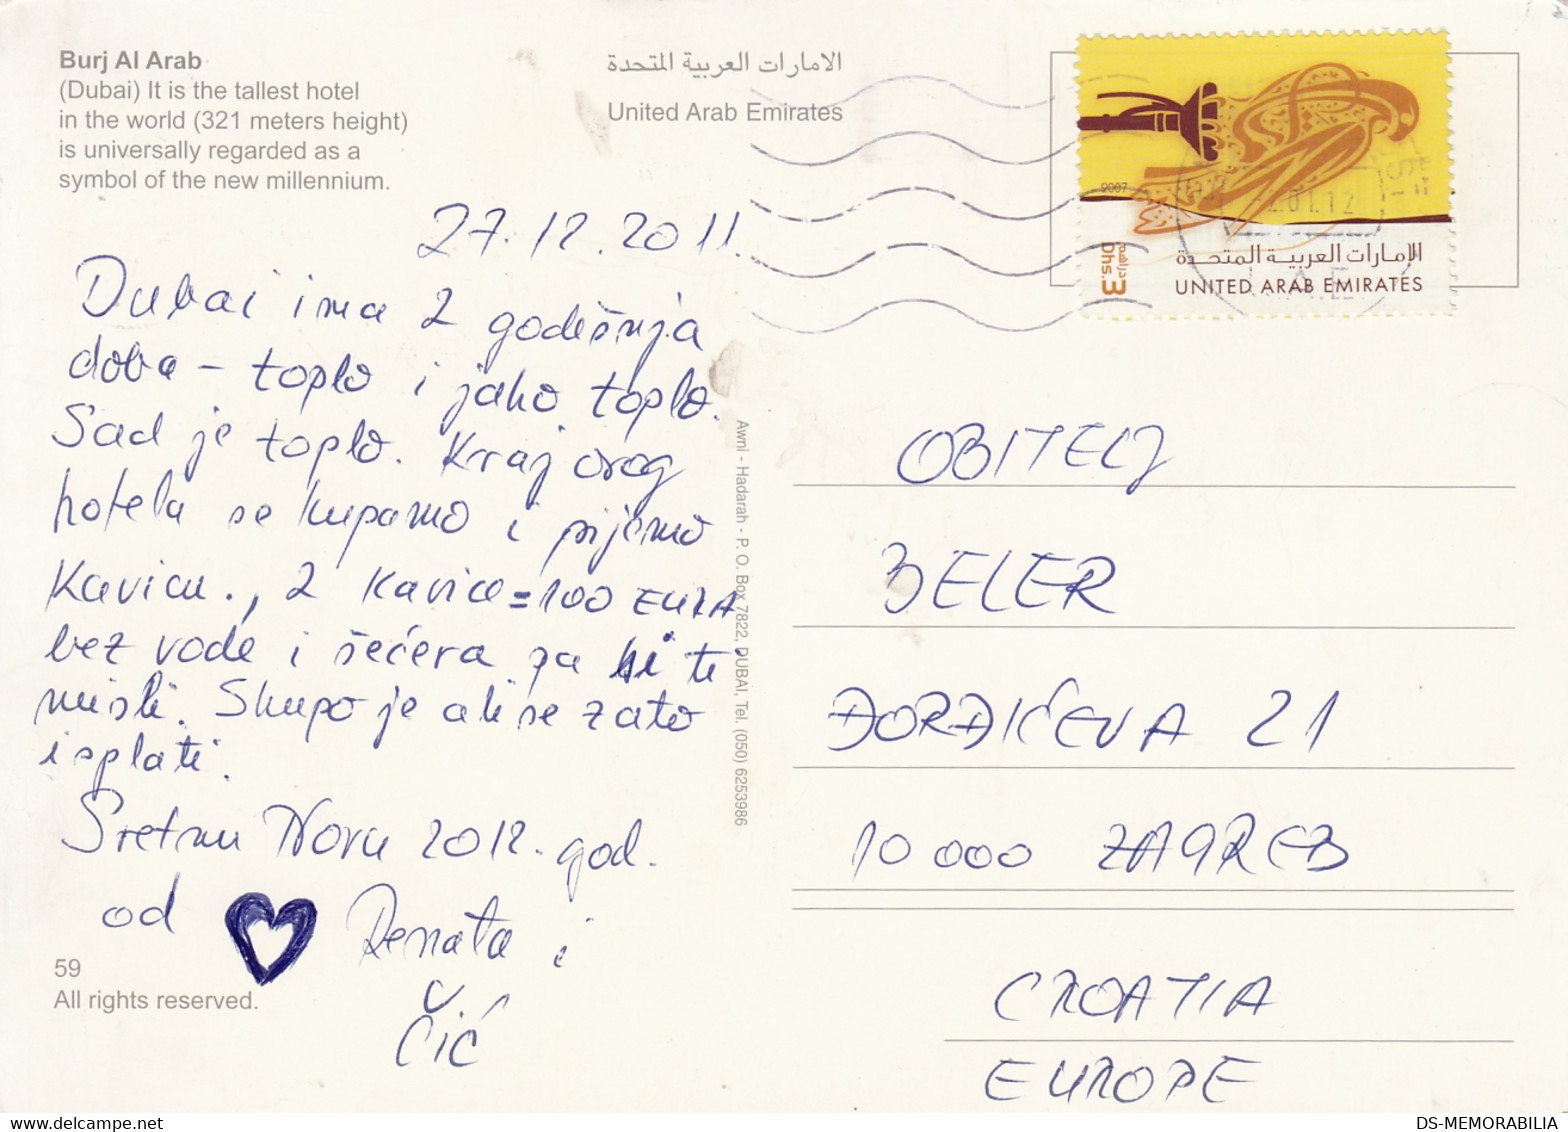 Burj Al Arab
(Dubai) It is the tallest hotel
in the world (321 meters height)
is universally regarded as a
symbol of the new millennium.
الامارات العربية المتحدة
United Arab Emirates
2007
3 دراهم
Dhs.
الإمارات العربية المتحدة
UNITED ARAB EMIRATES
27.12.2011.
Dubai ima 2 godišnja
doba – toplo i jako toplo.
Sad je toplo. Kraj ovog
hotela se kupamo i pijemo
kavicu., 2 kavice = 100 EURA
bez vode i šećera za bi te
misli. Skupo je ali se zato
isplati.
Sretnu Novu 2012. god.
od ♥ Renata i
Čić
59
All rights reserved.
Awni - Hadarah - P. O. Box 7822, DUBAI, Tel. (050) 6253986
OBITELJ
BELER
ĐORĐIĆEVA 21
10 000 ZAGREB
CROATIA
EUROPE
DS-MEMORABILIA